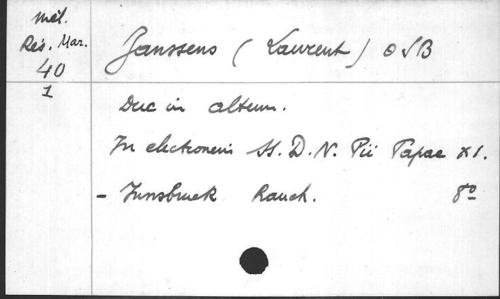 Mél.
Rés. Mar.
40
1
Janssens (Laurent) OSB
Duc in altum.
In electionem SS. D. N. Pii Papae XI.
- Innsbruck Rauch. 8º